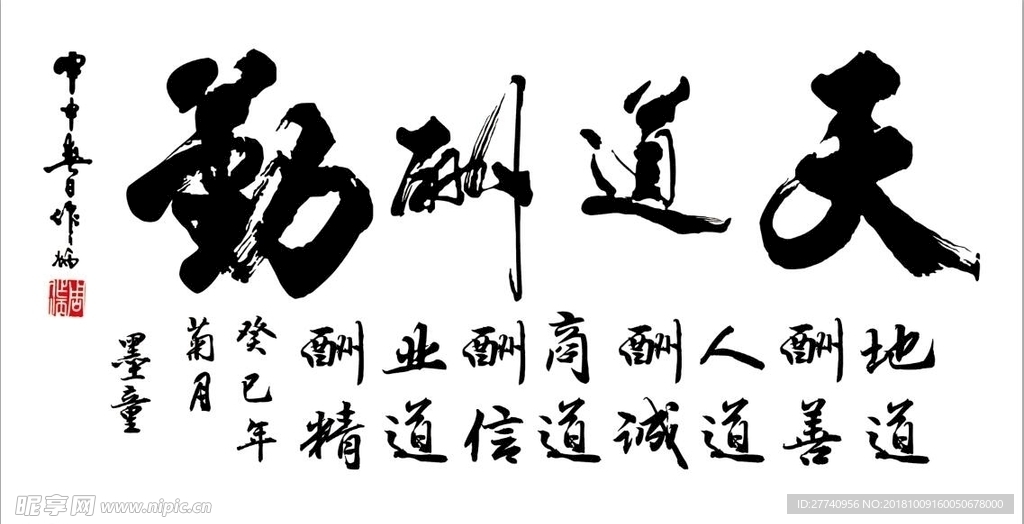 天道酬勤
地道酬善
人道酬诚
商道酬信
业道酬精
癸巳年
菊月
墨童
昵享网 www.nipic.cn
ID:27740956 NO:20181009160050678000